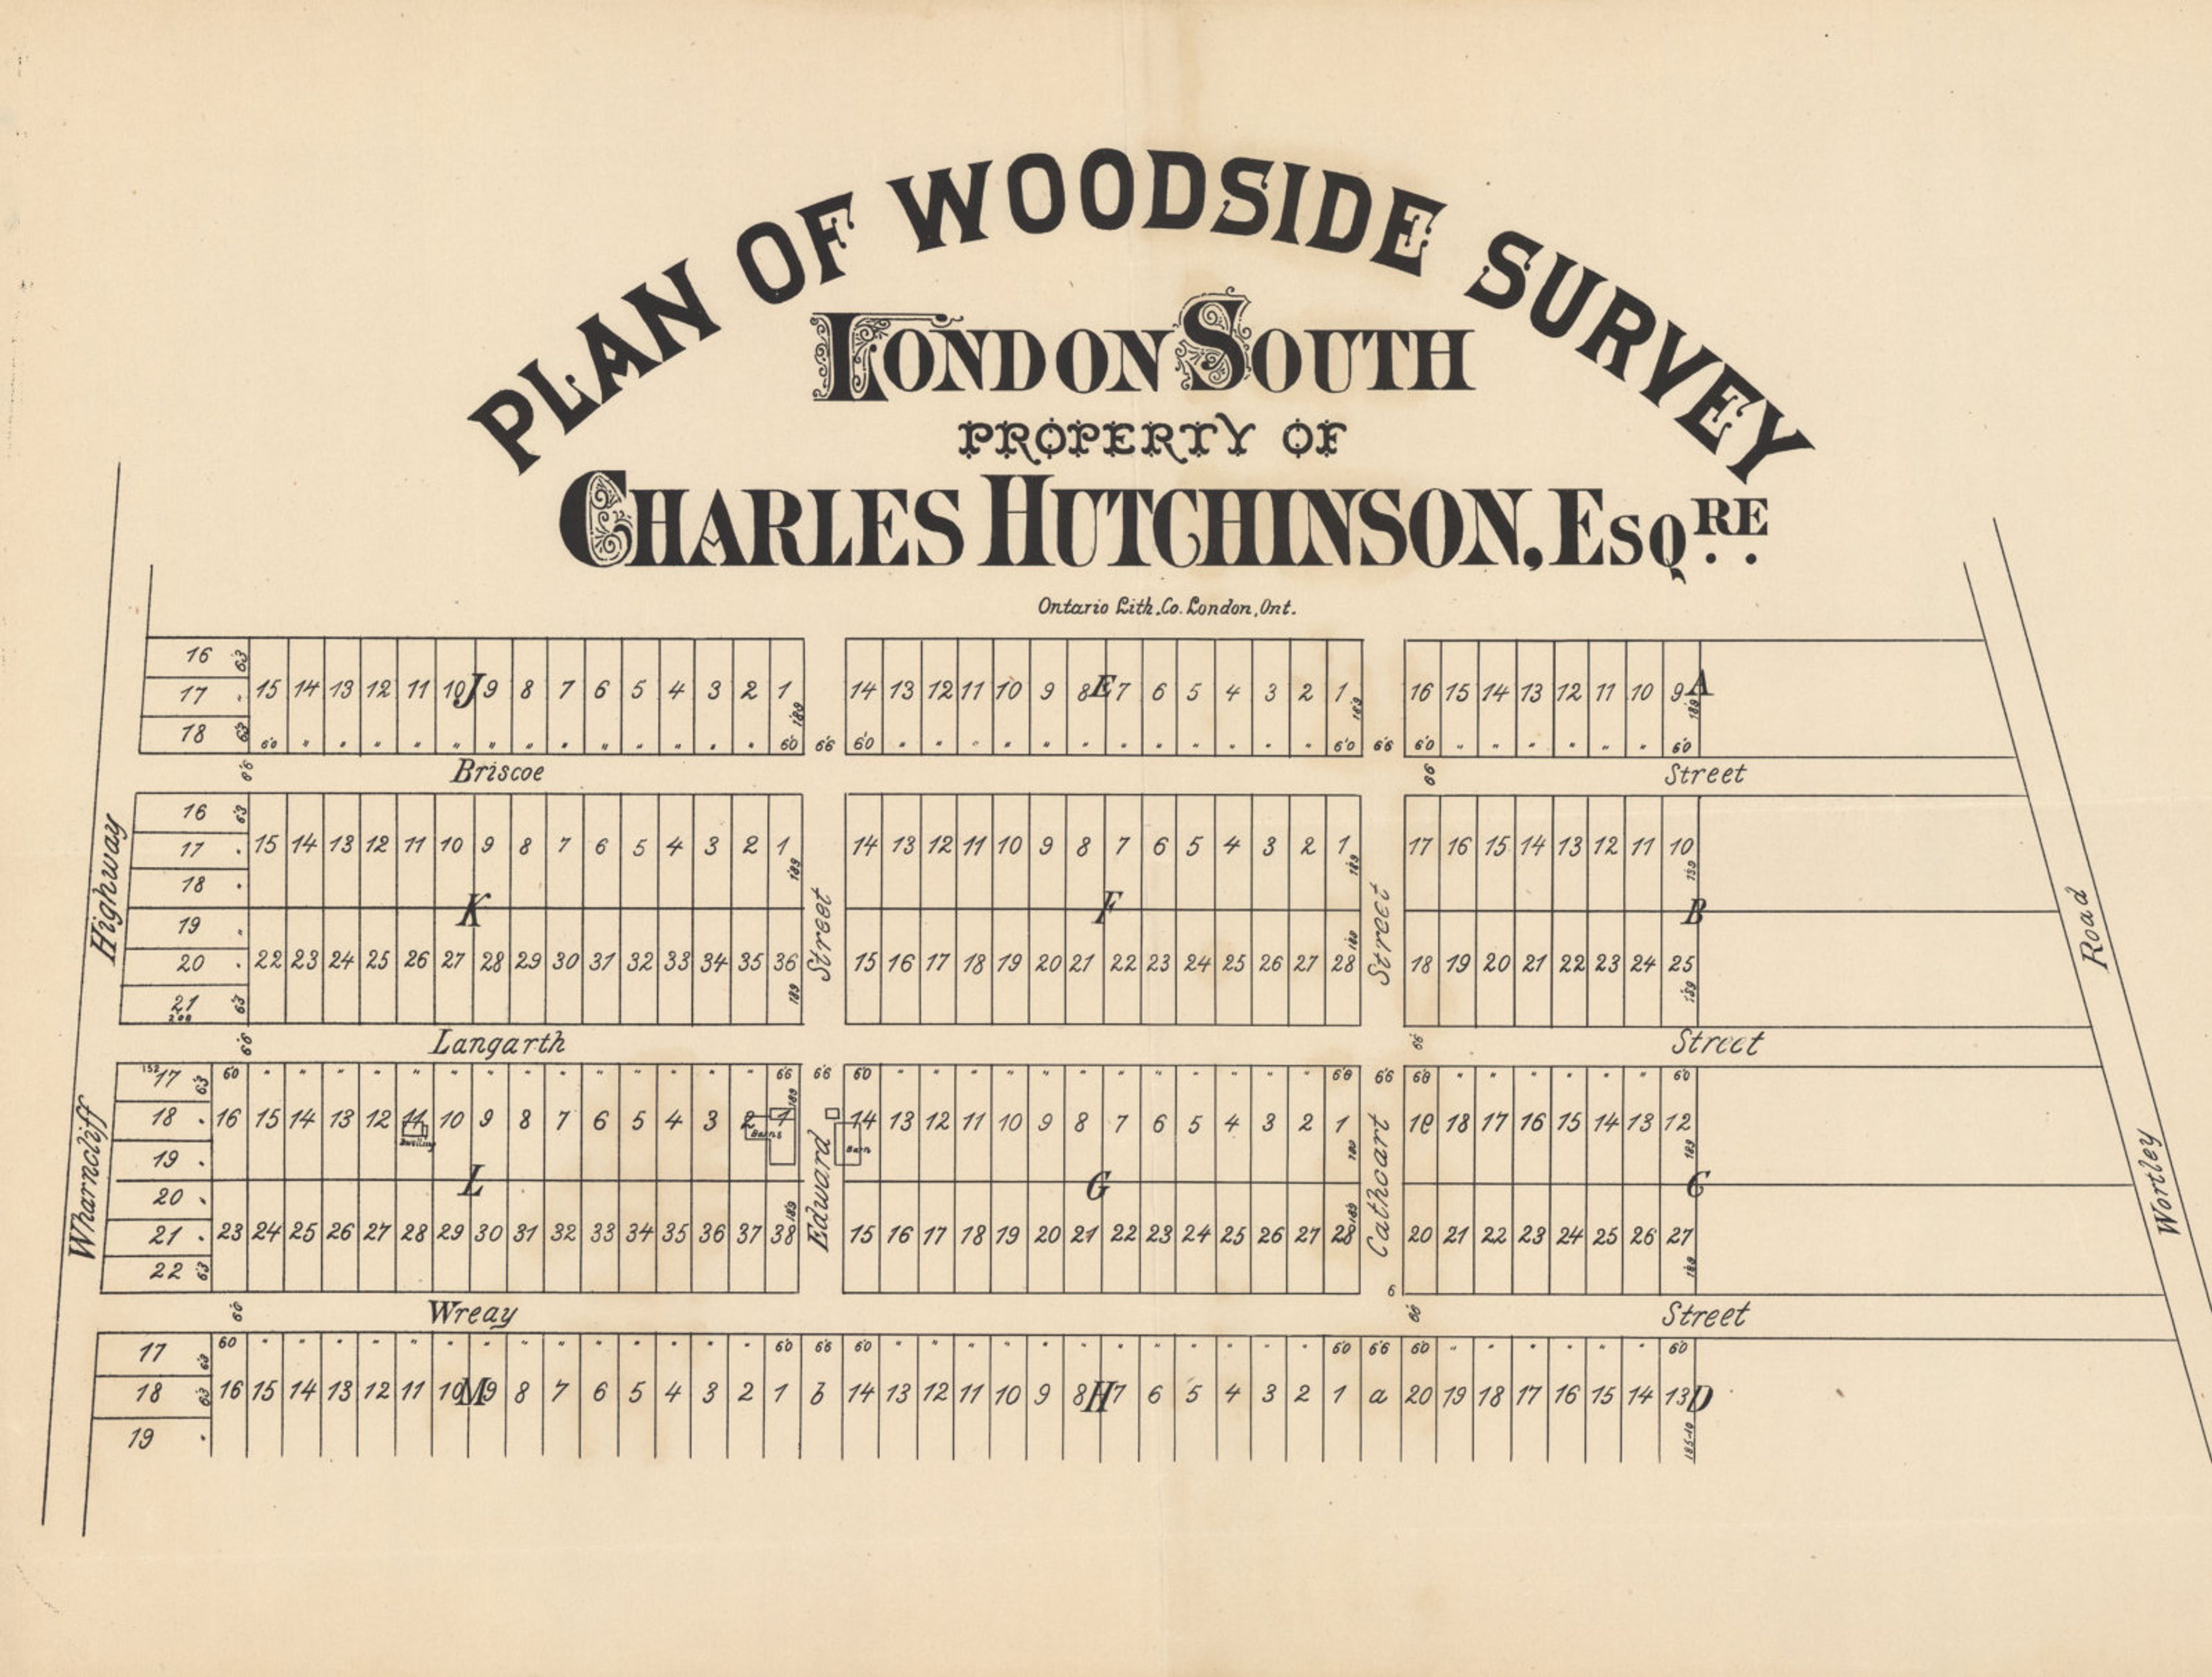 PLAN OF WOODSIDE SURVEY
LONDON SOUTH
PROPERTY OF
CHARLES HUTCHINSON, ESQRE
Ontario Lith. Co. London, Ont.
16 63
17 15 14 13 12 11 10 J 9 8 7 6 5 4 3 2 1 189 14 13 12 11 10 9 8 E 7 6 5 4 3 2 1 189 16 15 14 13 12 11 10 9 A 189
18 63 60 " " " " " " " " " " " " " 60 66 60 " " " " " " " " " " " " 60 66 60 " " " " " " 60
66 Briscoe 66 Street
16 63
17 15 14 13 12 11 10 9 8 7 6 5 4 3 2 1 189 14 13 12 11 10 9 8 7 6 5 4 3 2 1 189 17 16 15 14 13 12 11 10 189
18
K F B
19
20 22 23 24 25 26 27 28 29 30 31 32 33 34 35 36 189 15 16 17 18 19 20 21 22 23 24 25 26 27 28 189 18 19 20 21 22 23 24 25 189
21 63
66 Langarth 66 Street
152 17 63 60 " " " " " " " " " " " " " " 66 66 60 " " " " " " " " " " " " 60 66 60 " " " " " " 60
18 16 15 14 13 12 11 10 9 8 7 6 5 4 3 2 1 189 14 13 12 11 10 9 8 7 6 5 4 3 2 1 189 19 18 17 16 15 14 13 12 189
Dwelling Barns Barn
19
L G C
20
21 23 24 25 26 27 28 29 30 31 32 33 34 35 36 37 38 189 15 16 17 18 19 20 21 22 23 24 25 26 27 28 189 20 21 22 23 24 25 26 27 189
22 63 6
66 Wreay 66 Street
17 63 60 " " " " " " " " " " " " " " 60 66 60 " " " " " " " " " " " " 60 66 60 " " " " " " 60
18 63 16 15 14 13 12 11 10 M 9 8 7 6 5 4 3 2 1 b 14 13 12 11 10 9 8 H 7 6 5 4 3 2 1 a 20 19 18 17 16 15 14 13 D
19
Wharncliff Highway
Edward Street
Cathcart Street
Wortley Road